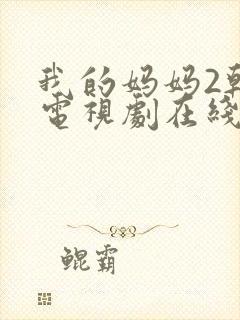 我的妈妈2韩
電視劇在綫
鲲霸